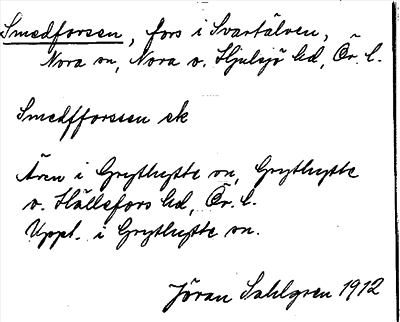 Smedforsen, fors i Svartälven,
Nora sn, Nora o. Hjulsjö hd, Ör. l.
Smedfforssen ek
Även i Grythytte sn, Grythytte
o. Hällefors hd, Ör. l.
Uppt. i Grythytte sn.
Jöran Sahlgren 1912